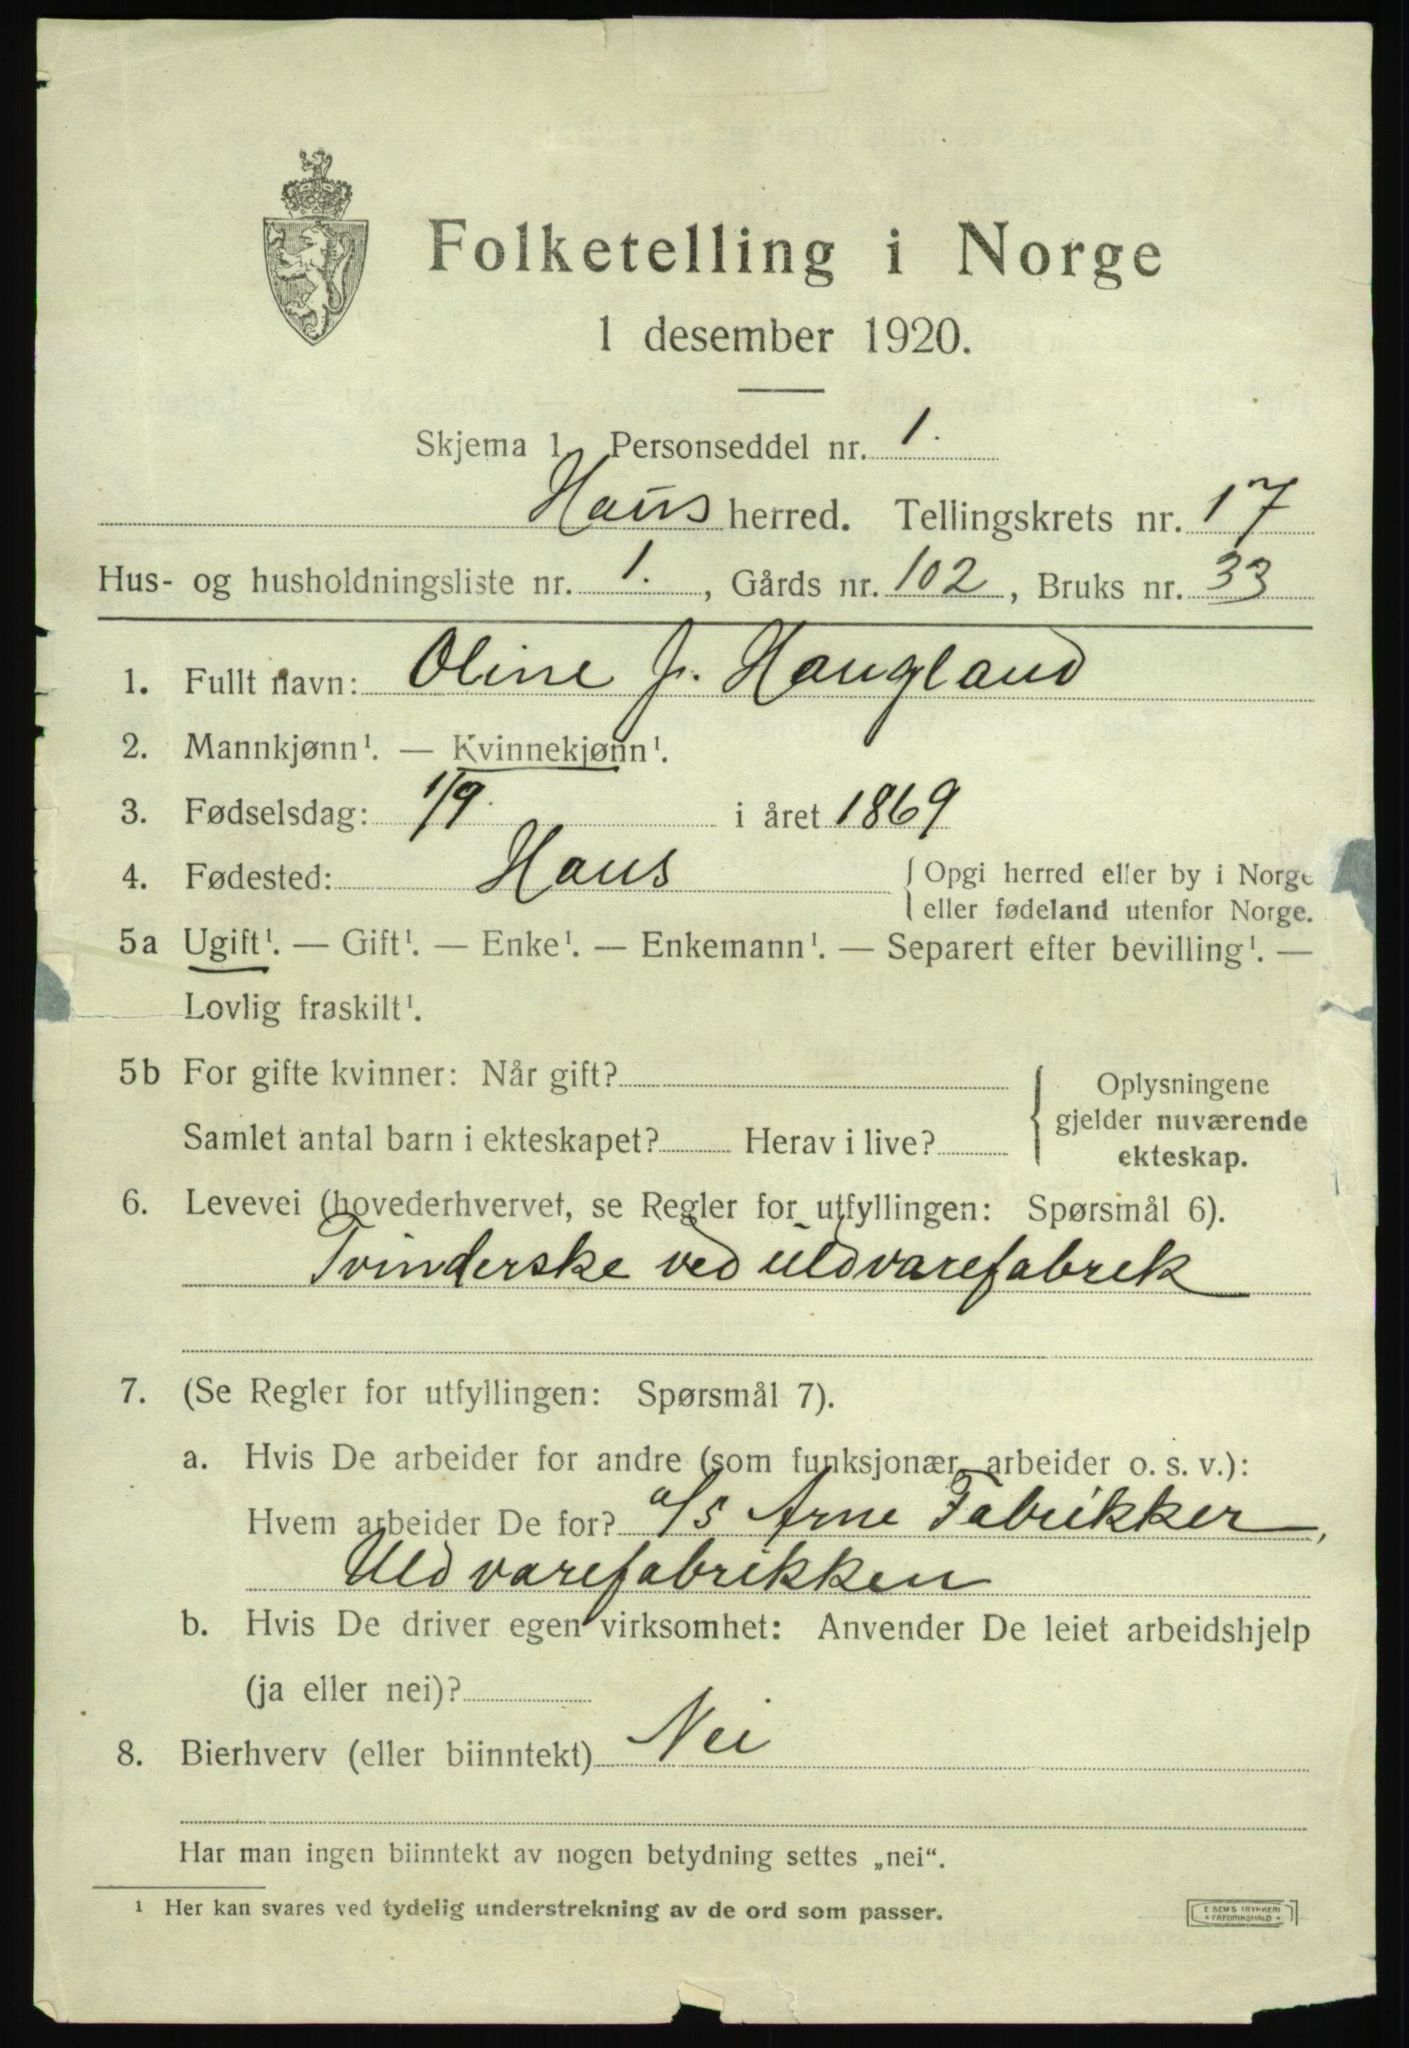 Folketelling i Norge
1 desember 1920.
Skjema 1 Personseddel nr. 1.
Haus herred. Tellingskrets nr. 17
Hus- og husholdningsliste nr. 1. , Gårds nr. 102 , Bruks nr. 33
1. Fullt navn: Oline J. Haugland
2. Mannkjønn¹. — Kvinnekjønn¹.
3. Fødselsdag: 1/9. i året 1869
4. Fødested: Haus { Opgi herred eller by i Norge
eller fødeland utenfor Norge.
5a Ugift¹. — Gift¹. — Enke¹. — Enkemann¹. — Separert efter bevilling¹. —
Lovlig fraskilt¹.
5b For gifte kvinner: Når gift? { Oplysningene
gjelder nuværende
ekteskap.
Samlet antal barn i ekteskapet? Herav i live?
6. Levevei (hovederhvervet, se Regler for utfyllingen: Spørsmål 6).
Tvinderske ved uldvarefabrek
7. (Se Regler for utfyllingen: Spørsmål 7).
a. Hvis De arbeider for andre (som funksjonær, arbeider o. s. v.):
Hvem arbeider De for? a/s Arne Fabrikker,
Uldvarefabrikken
b. Hvis De driver egen virksomhet: Anvender De leiet arbeidshjelp
(ja eller nei)?
8. Bierhverv (eller biinntekt) Nei
Har man ingen biinntekt av nogen betydning settes „nei“.
¹ Her kan svares ved tydelig understrekning av de ord som passer.
E SEM'S TRYKKERI
* FREDRIKSHALD *